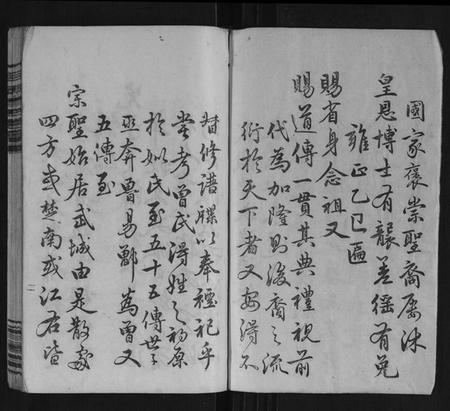 國家褒崇聖裔屢沐
皇恩博士有襲差徭有免
雍正乙巳匾
賜省身念祖又
賜道傳一貫其典禮視前
代為加隆則後裔之流
衍於天下者又安得不
督修譜牒以奉禋祀乎
嘗考曾氏得姓之初原
於姒氏至五十五傳世子
巫奔魯易鄫為曾又
五傳至
宗聖始居武城由是散處
四方或楚南或江右皆